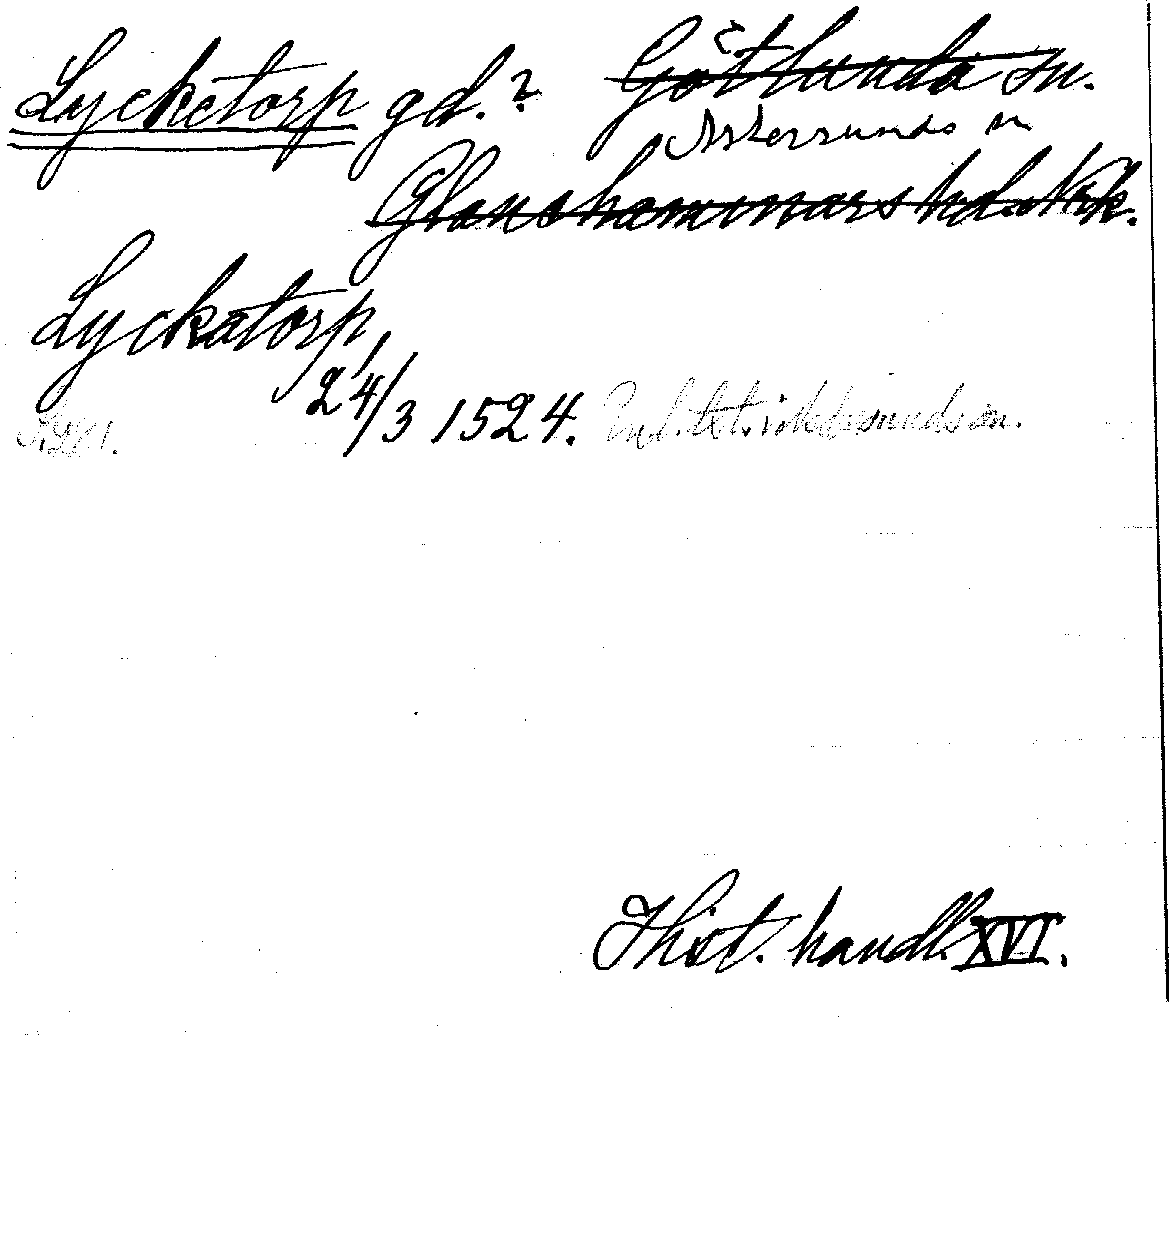 Lycketorp gd.? Götlunda sn.
Askersunds sn
Glanshammars hd. Nrk.
Lyckatorp,
24/3 1524. Enl. t. i Askersunds sn.
Hist. handl. XVI.